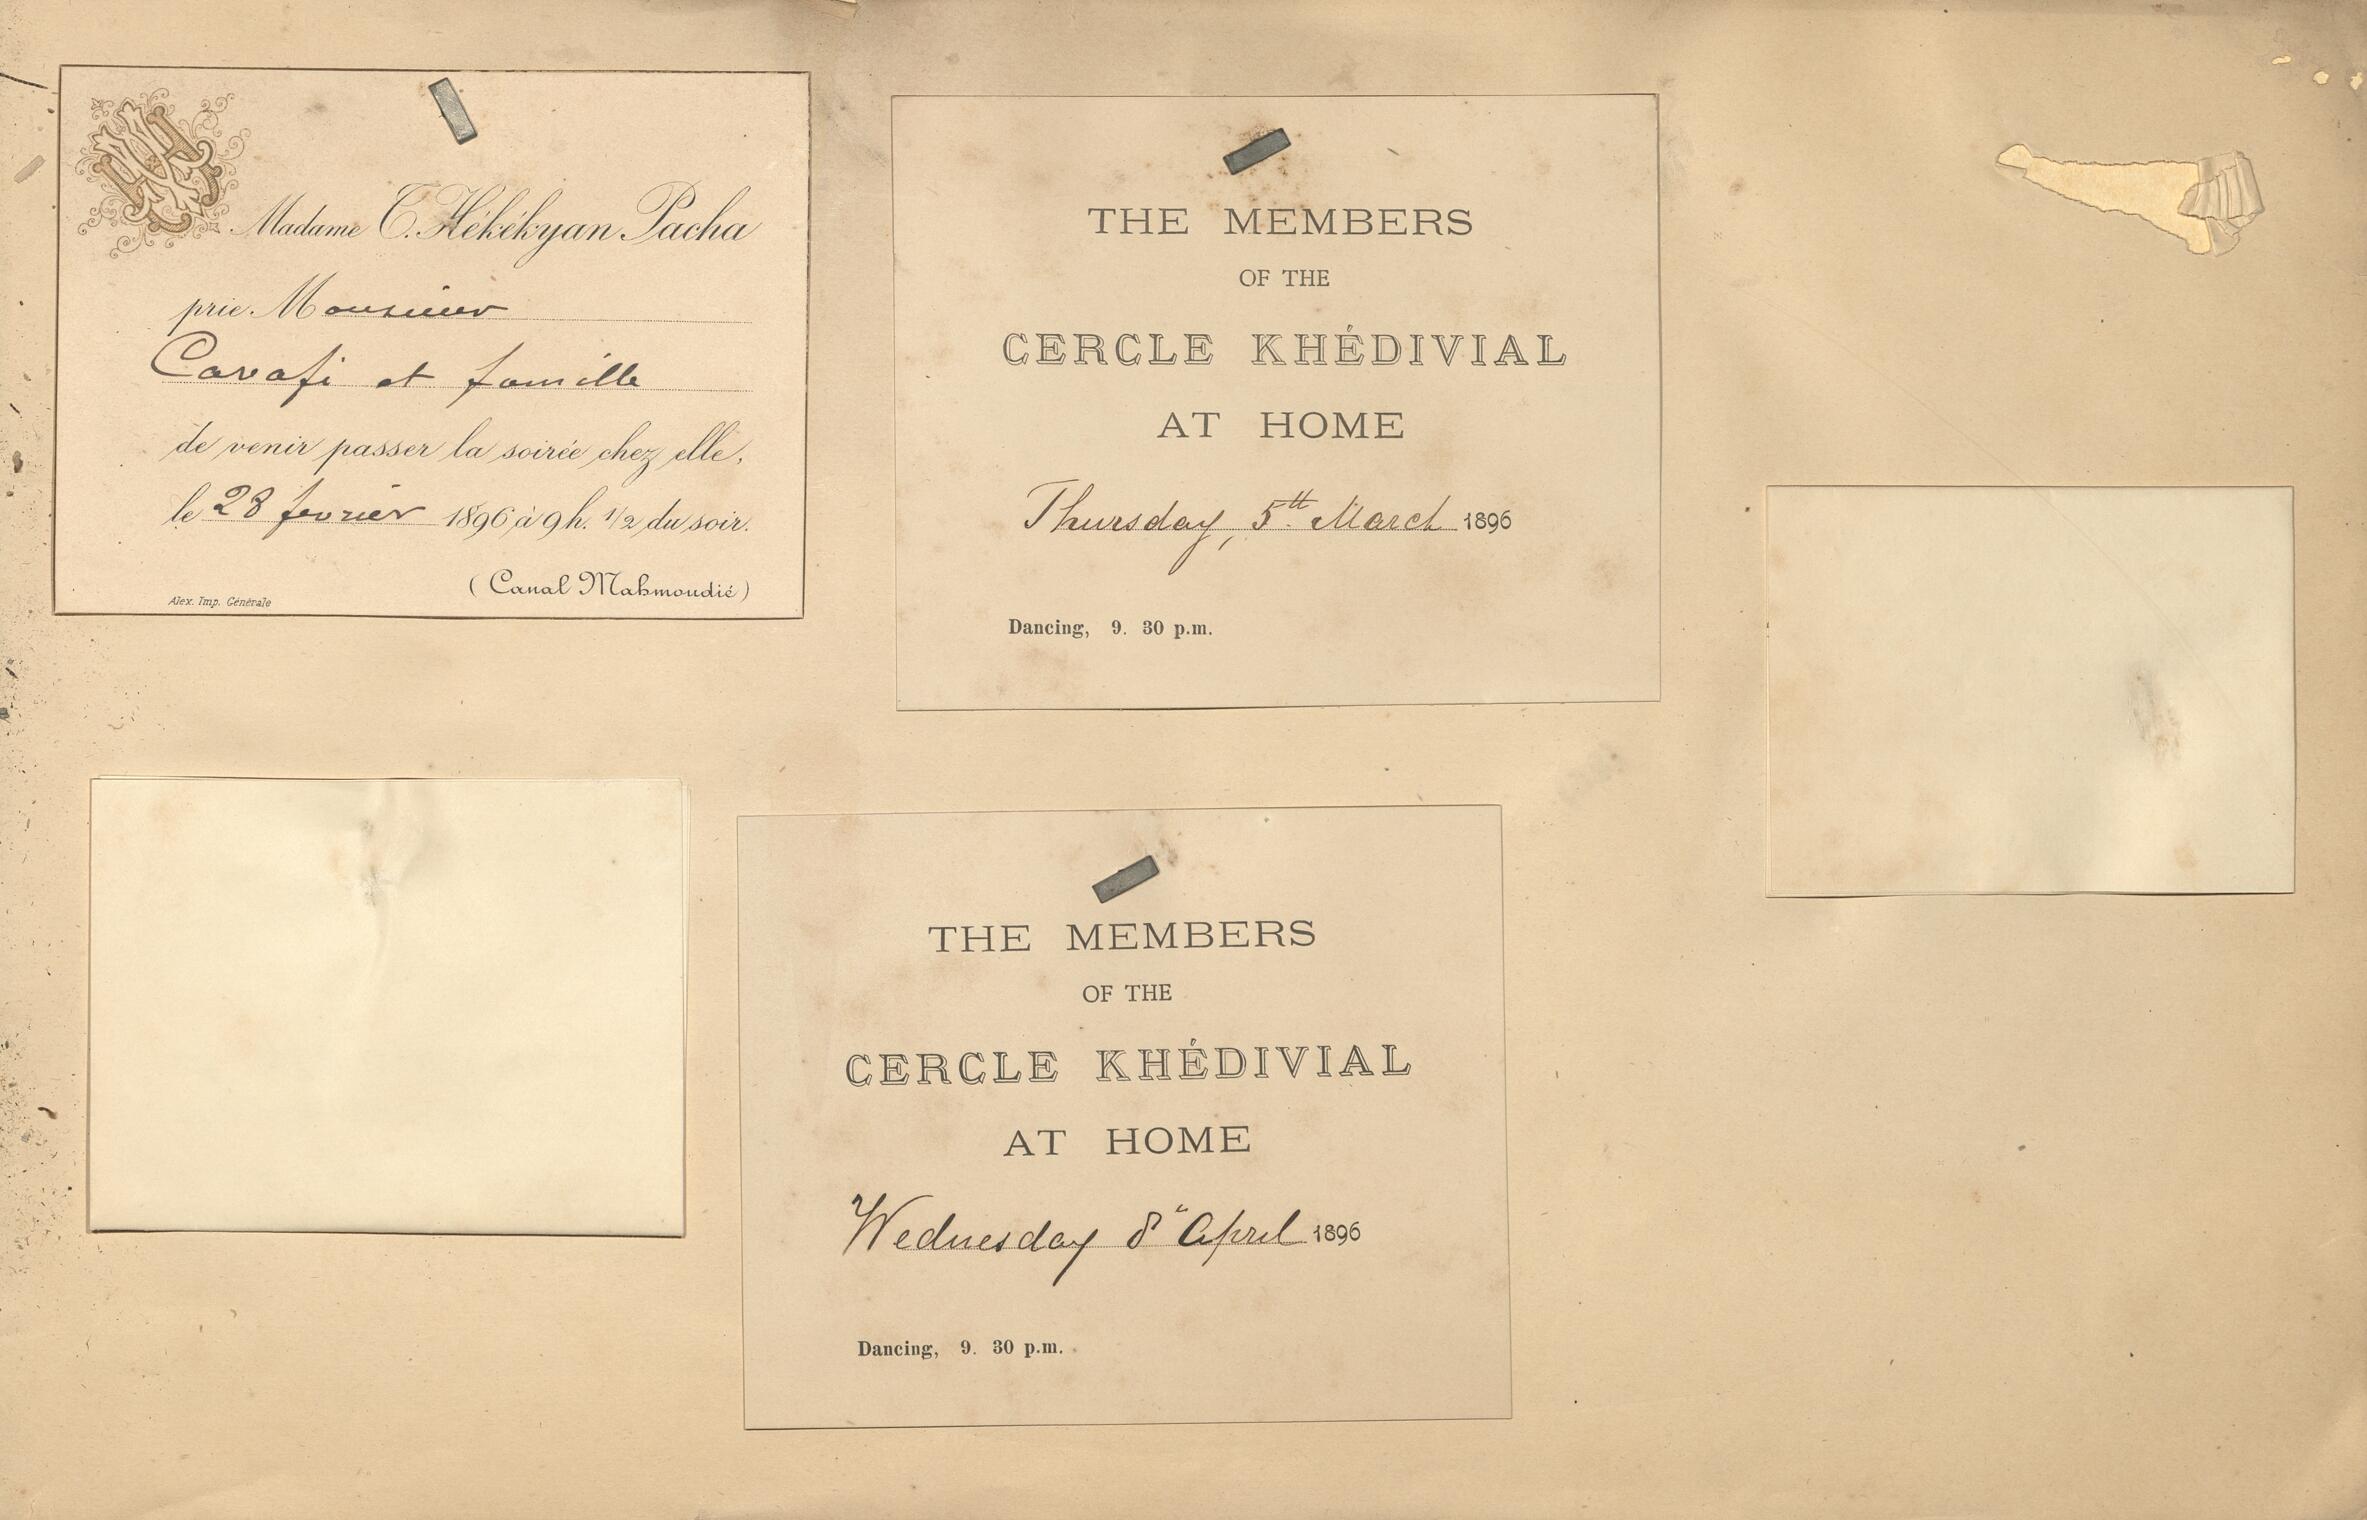 Madame T. Hékékyan Pacha
prie Monsieur
Cavafi et famille
de venir passer la soirée chez elle,
le 28 fevrier 1896 à 9h. 1/2 du soir.
(Canal Mahmoudié)
Alex. Imp. Générale
THE MEMBERS
OF THE
CERCLE KHÉDIVIAL
AT HOME
Thursday, 5th March 1896
Dancing, 9. 30 p.m.
THE MEMBERS
OF THE
CERCLE KHÉDIVIAL
AT HOME
Wednesday 8" April 1896
Dancing, 9. 30 p.m.